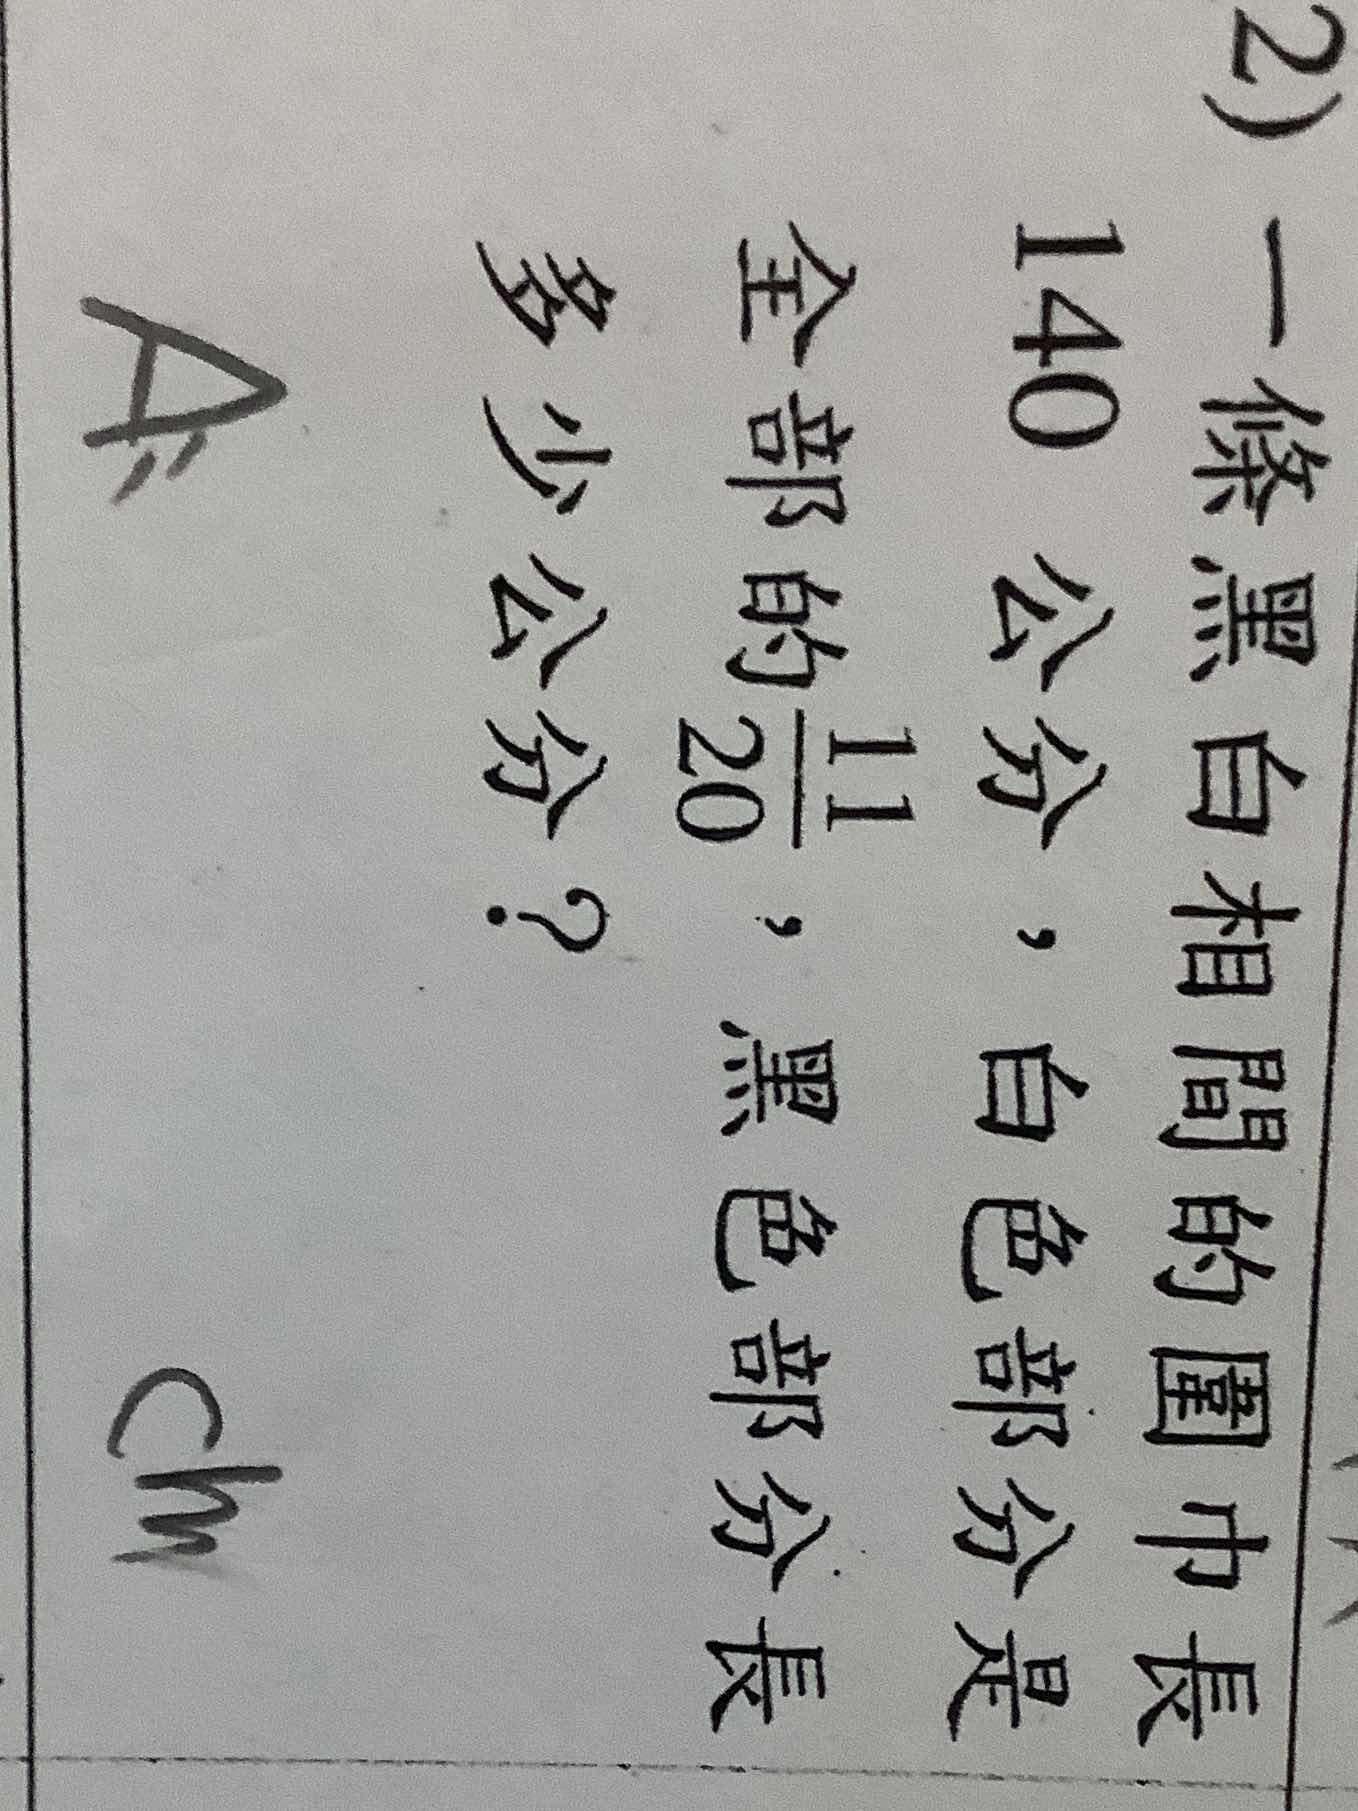 2) 一條黑白相間的圍巾長
140 公分，白色部分是
全部的11/20，黑色部分長
多少公分？
A: cm